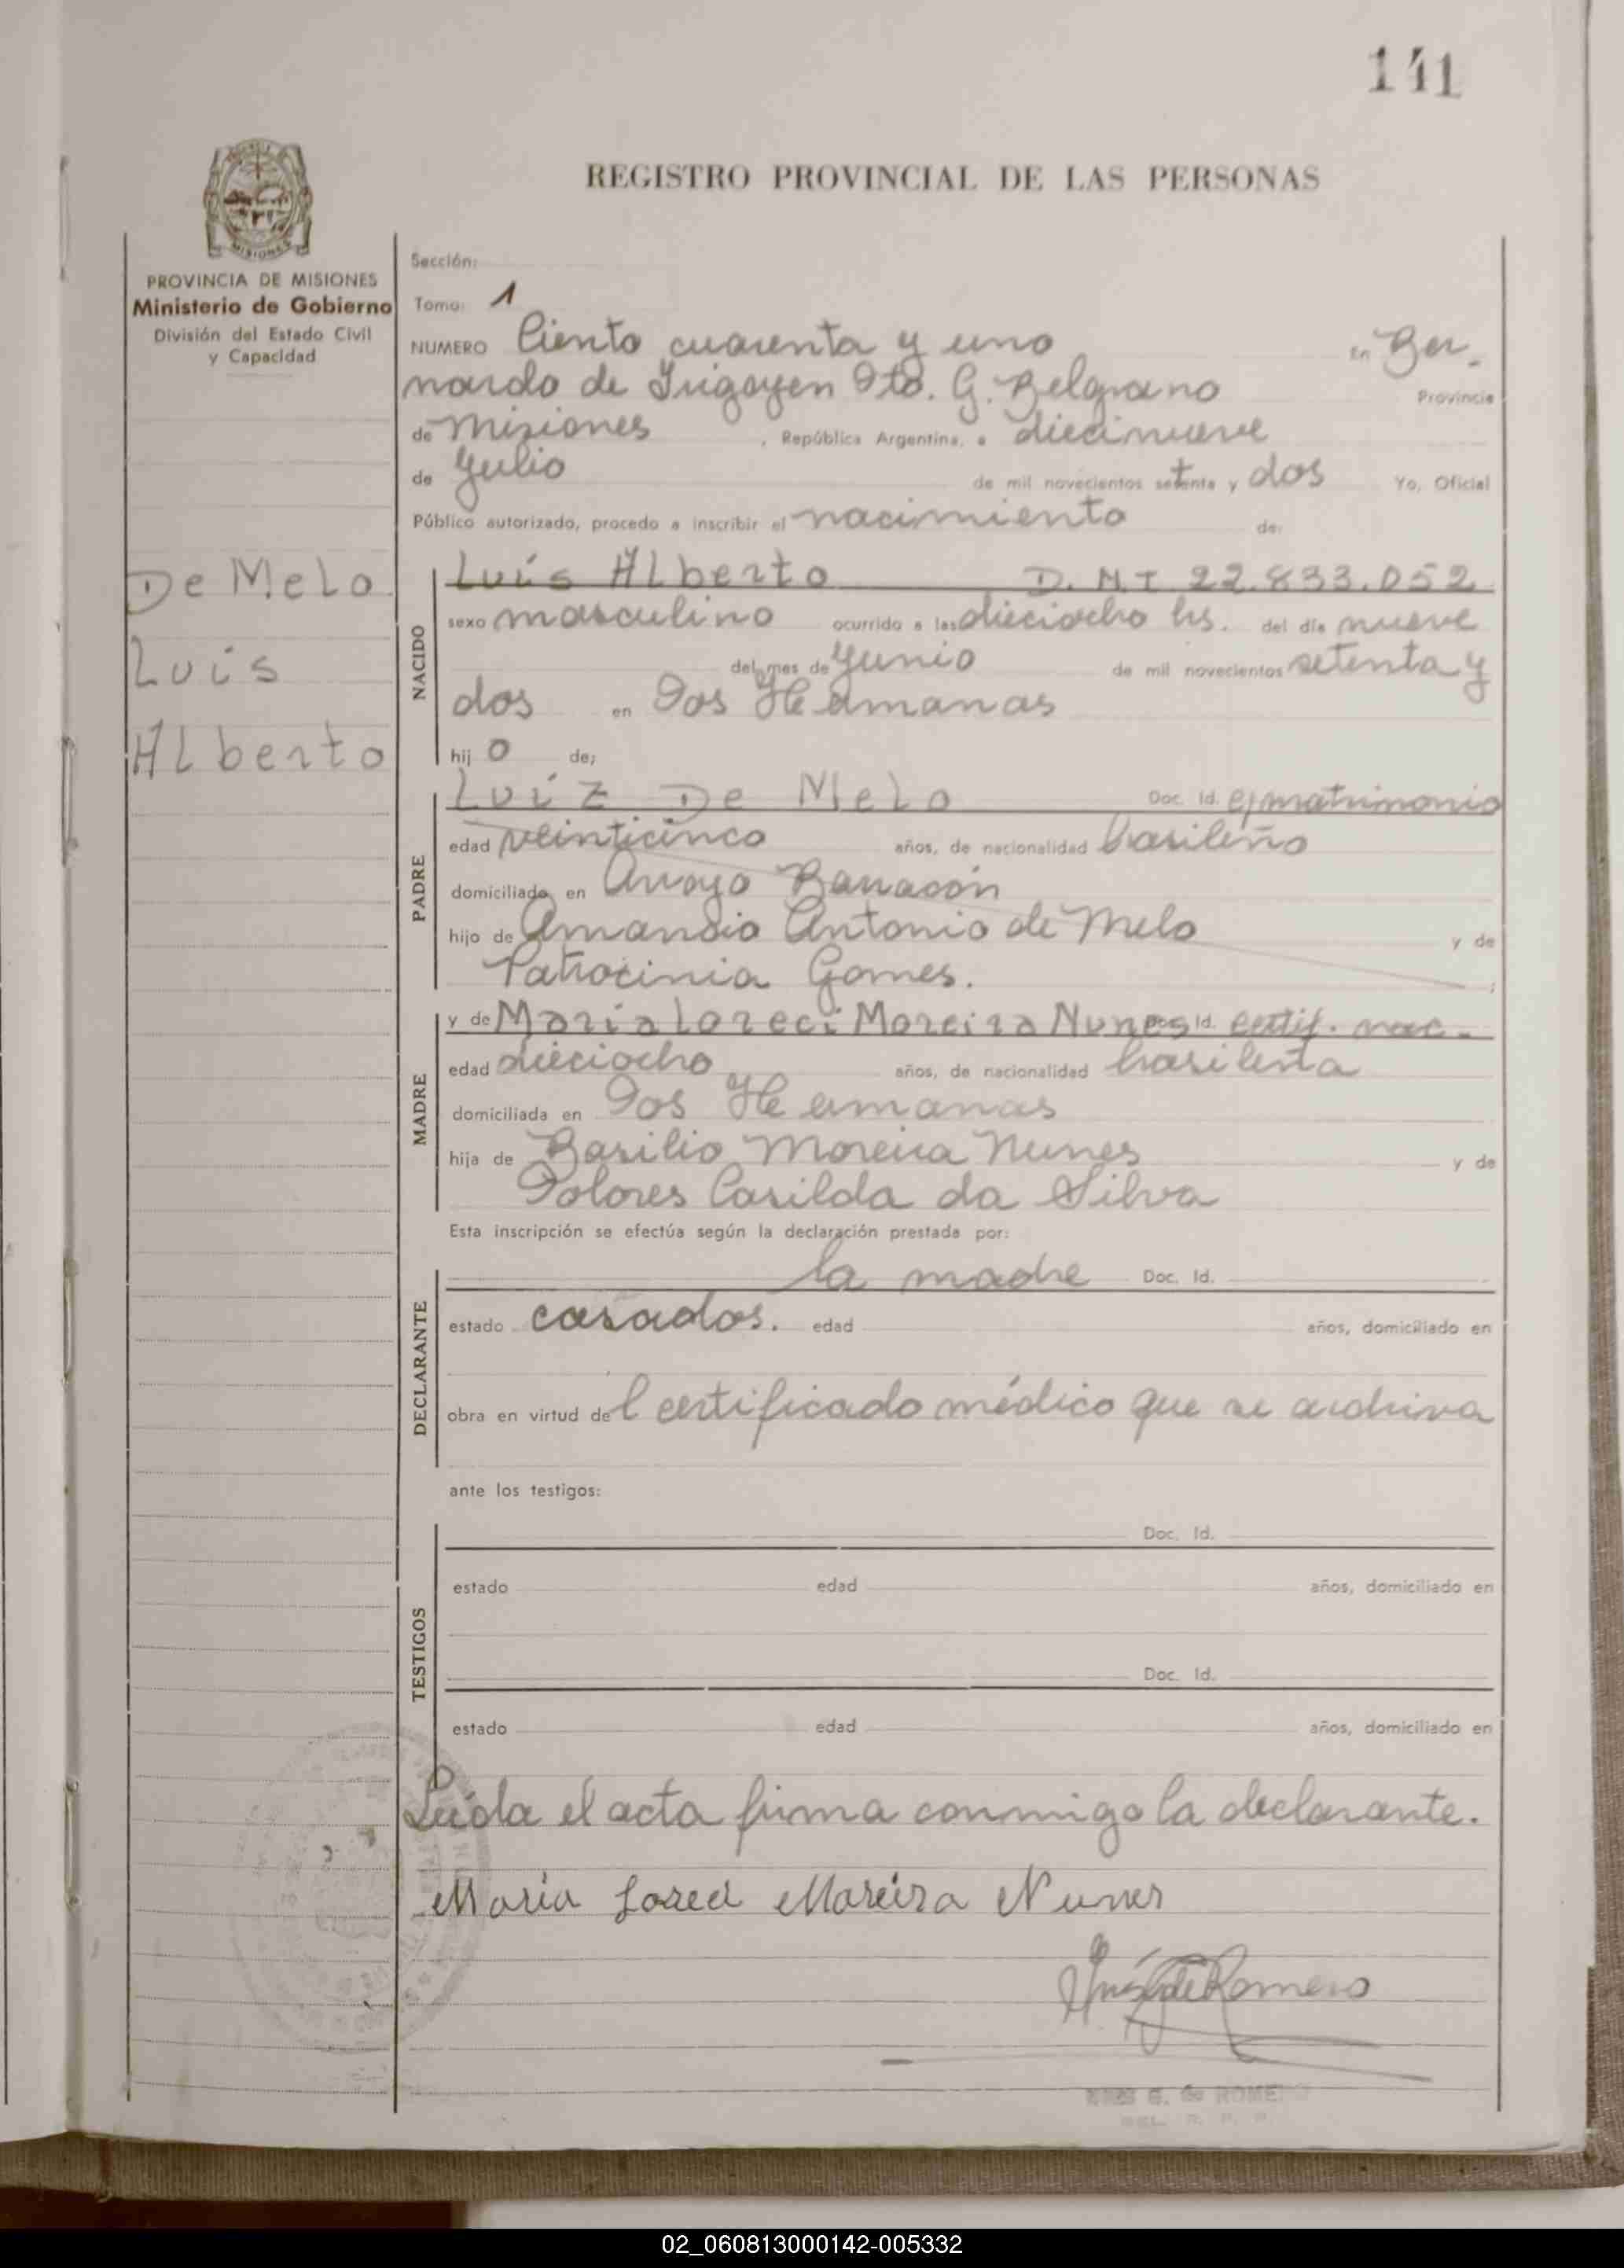 141
REGISTRO PROVINCIAL DE LAS PERSONAS
MISIONES
PROVINCIA DE MISIONES
Ministerio de Gobierno
División del Estado Civil
y Capacidad
De Melo
Luis
Alberto
Sección:
Tomo: 1
NUMERO Ciento cuarenta y uno en Ber-
nardo de Irigoyen Dto. G. Belgrano Provincia
de Misiones, República Argentina, a diecinueve
de Julio de mil novecientos setenta y dos Yo, Oficial
Público autorizado, procedo a inscribir el nacimiento de:
NACIDO
Luís Alberto D.N.I 22.833.052
sexo masculino ocurrido a las dieciocho hs. del día nueve
del mes de Junio de mil novecientos setenta y
dos en Dos Hermanas
hij o de:
PADRE
Luíz De Melo Doc. Id. c/matrimonio
edad veinticinco años, de nacionalidad brasileño
domiciliado en Arroyo Barracón
hijo de Amandio Antonio de Melo y de
Patrocinia Gomes.
MADRE
y de Maria Loreci Moreira Nunes Doc. Id. certif. nac.
edad dieciocho años, de nacionalidad brasileña
domiciliada en Dos Hermanas
hija de Basilio Moreira Nunes y de
Dolores Casilda da Silva
Esta inscripción se efectúa según la declaración prestada por:
DECLARANTE
la madre Doc. Id.
estado casados. edad años, domiciliado en
obra en virtud del certificado médico que se archiva
ante los testigos:
TESTIGOS
Doc. Id.
estado edad años, domiciliado en
Doc. Id.
estado edad años, domiciliado en
Leída el acta firma conmigo la declarante.
Maria Loreci Moreira Nunes
de Romero
G. de ROMERO
02_060813000142-005332